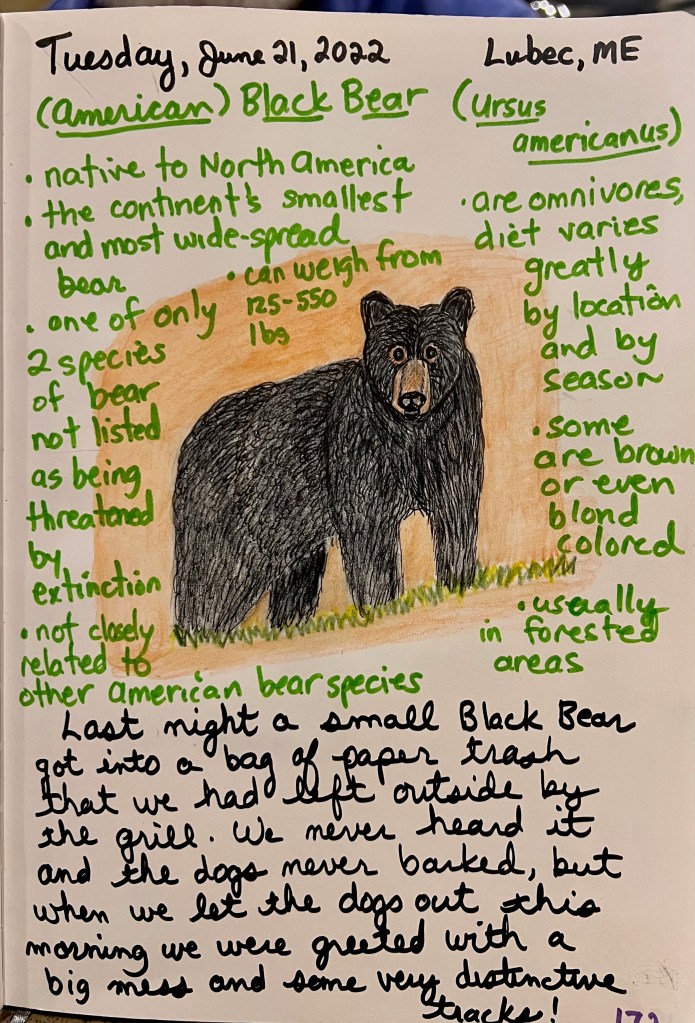 Tuesday, June 21, 2022 Lubec, ME
(American) Black Bear (Ursus
americanus)
• native to North America
• the continent's smallest
and most wide-spread
bear
• can weigh from
125-550
lbs
• one of only
2 species
of bear
not listed
as being
threatened
by
extinction
• not closely
related to
other American bear species
• are omnivores,
diet varies
greatly
by location
and by
season
• some
are brown
or even
blond
colored
• usually
in forested
areas
Last night a small Black Bear
got into a bag of paper trash
that we had left outside by
the grill. We never heard it
and the dogs never barked, but
when we let the dogs out this
morning we were greeted with a
big mess and some very distinctive
tracks!